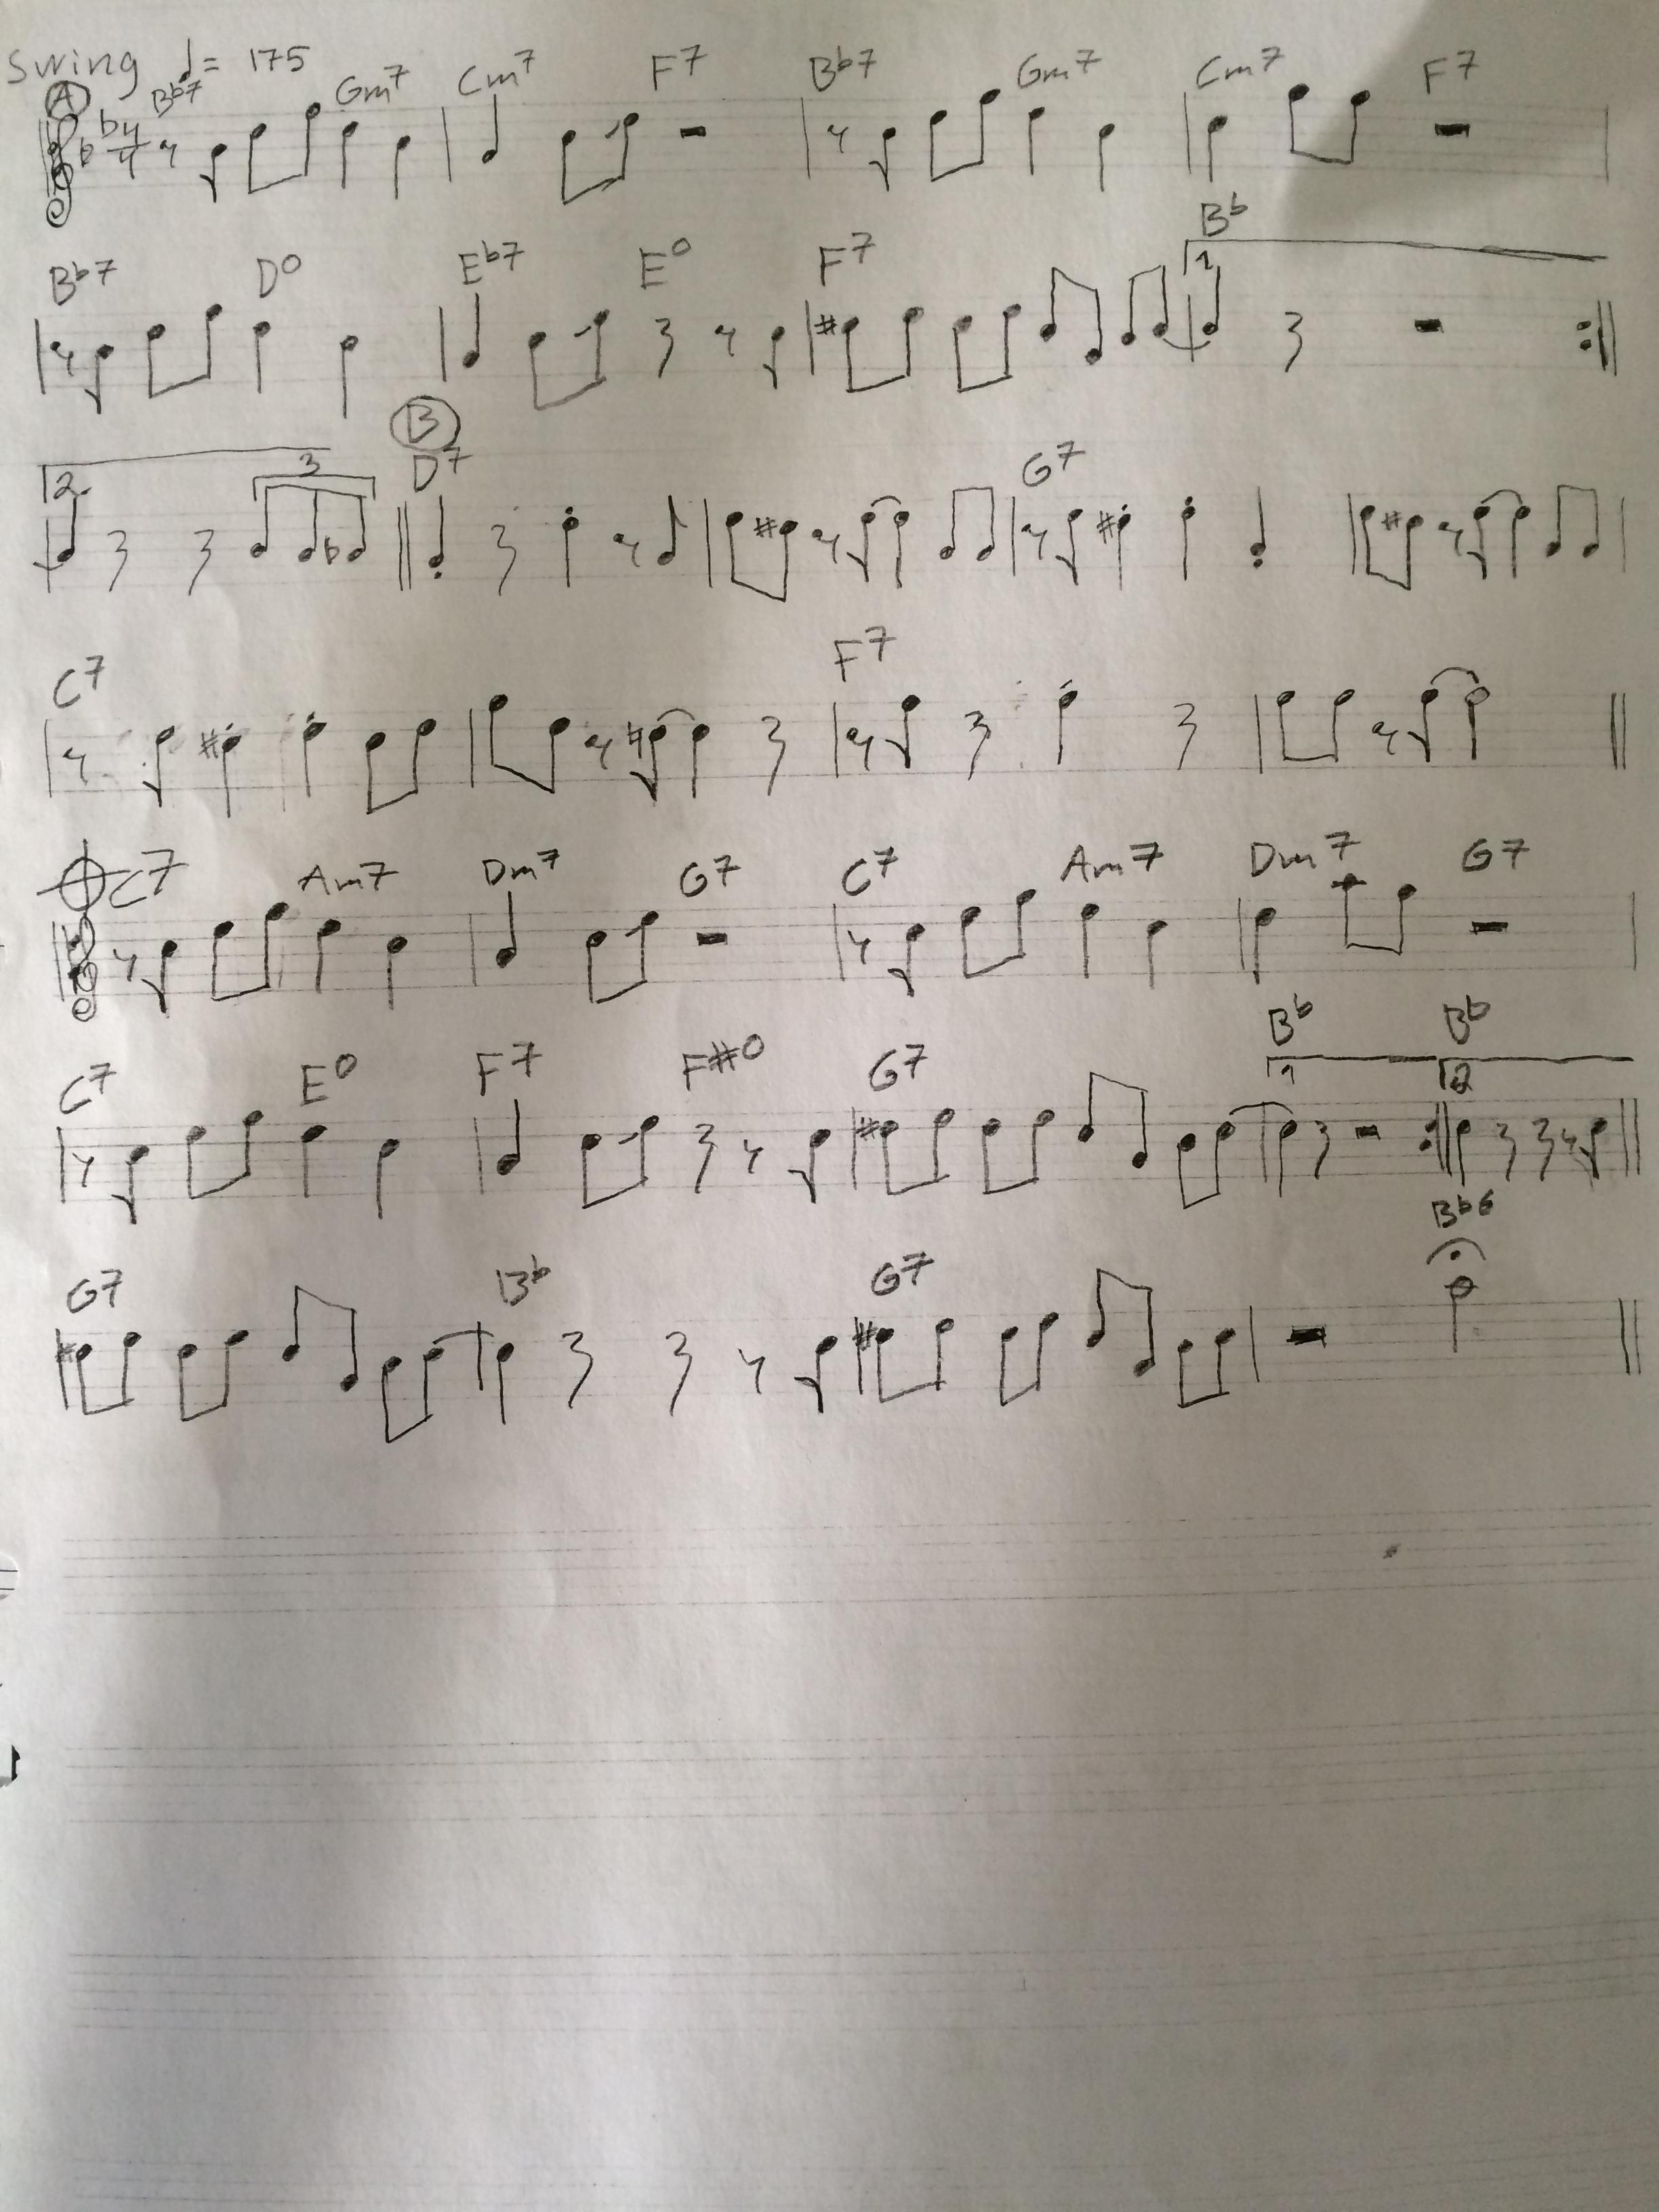 Swing ♩= 175
A Bb7 Gm7 Cm7 F7 Bb7 Gm7 Cm7 F7
b b 4/4
Bb7 D° Eb7 E° F7 Bb
1
2. 3 B D7 G7
C7 F7
C7 Am7 Dm7 G7 C7 Am7 Dm7 G7
C7 E° F7 F#° G7 Bb Bb
1 2
G7 Bb G7 Bb6